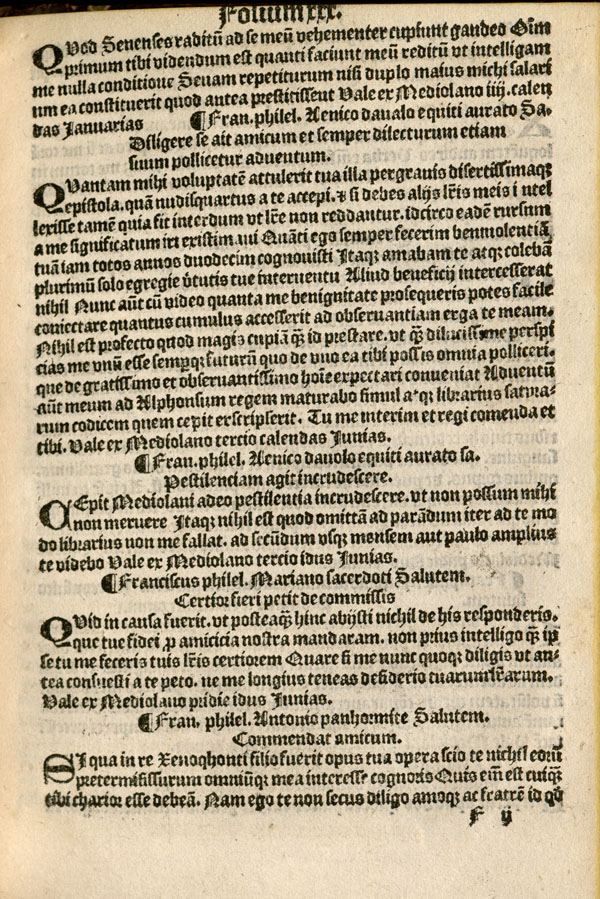 Folium xxx.
QVod Senenses raditū ad se meū vehementer cupiunt gaudeo Gīm
primum tibi videndum est quanti faciunt meū reditū vt intelligam
me nulla conditione Seuam repetiturum nisi duplo maius michi salari
um ea constituerit quod antea prestitissent Vale ex Mediolano iiij. calen
das Januarias ¶Fran. philel. Aenico daualo equiti aurato Sa.
Diligere se ait amicum et semper dilecturum etiam
suum pollicetur aduentum.
QVantam mihi voluptatē attulerit tua illa pergrauis disertissimaqꝫ
epistola. quā nudisquartus a te accepi. ⁊ si debes alijs lr̄is meis i ntel
lexisse tamē quia fit interdum vt lr̄e non reddantur. idcirco eadē rursum
a me significatum iri existim aui Quāti ego semper fecerim beniuolentiā
tuā iam totos annos duodecim cognouisti Itaqꝫ amabam te atqꝫ colebā
plurimū solo egregie v̄tutis tue interuentu Aliud beneficij intercesserat
nihil Nunc aūt cū video quanta me benignitate prosequeris potes facile
coniectare quantus cumulus accesserit ad obseruantiam erga te meam.
Nihil est profecto quod magis cupiā qꝫ id prestare. vt qꝫ dilucissime perspi
cias me vnū esse sempqꝫ futurū quo de vno ea tibi possis omnia polliceri.
que de gratissimo et obseruantissimo hoīe expectari conueniat Aduentū
aūt meum ad Alphonsum regem maturabo simul atqꝫ librarius satyra-
rum codicem quem cepit exscripserit. Tu me interim et regi comenda et
tibi. Vale ex Mediolano tercio calendas Junias.
¶Fran. philel. Aenico dauolo equiti aurato sa.
Pestilenciam agit incrudescere.
CEpit Mediolani adeo pestilentia incrudescere. vt non possum mihi
non meruere Itaqꝫ nihil est quod omittā ad parādum iter ad te mo
do librarius non me fallat. ad secūdum vsqꝫ mensem aut paulo amplius
te videbo Vale ex Mediolano tercio idus Junias.
¶Franciscus philel. Mariano sacerdoti Salutem.
Certior fieri petit de commissis
QVid in causa fuerit. vt posteaqꝫ hinc abijsti nichil de his responderis.
que tue fidei ꝓ amicicia nostra mandaram. non prius intelligo qꝫ ip
se tu me feceris tuis lr̄is certiorem Quare si me nunc quoqꝫ diligis vt an-
tea consuesti a te peto. ne me longius teneas desiderio tuarum lr̄arum.
Vale ex Mediolano pridie idus Junias.
¶Fran. philel. Antonio panhormite Salutem.
Commendat amicum.
SI qua in re Xenoqhonti filio fuerit opus tua opera scio te nichil eorū
pretermissurum omniūqꝫ mea interesse cognoris Quis em̄ est cuiqꝫ
tibi charior esse debeā. Nam ego te non secus diligo amoqꝫ ac fratrē id qd̄
F ij